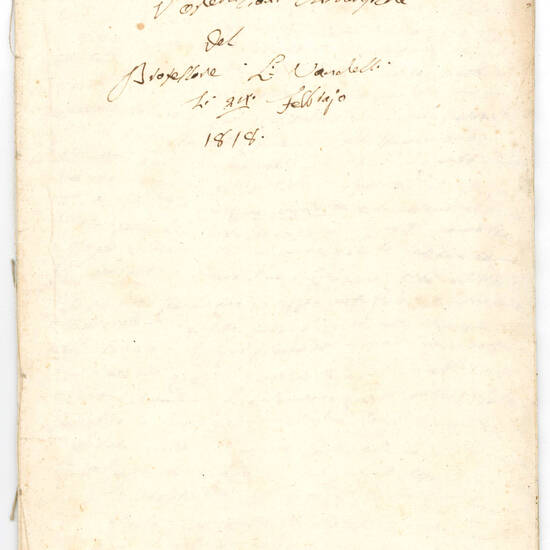 del
Professore L. Vandelli
Li xix. Febbrajo
1818.